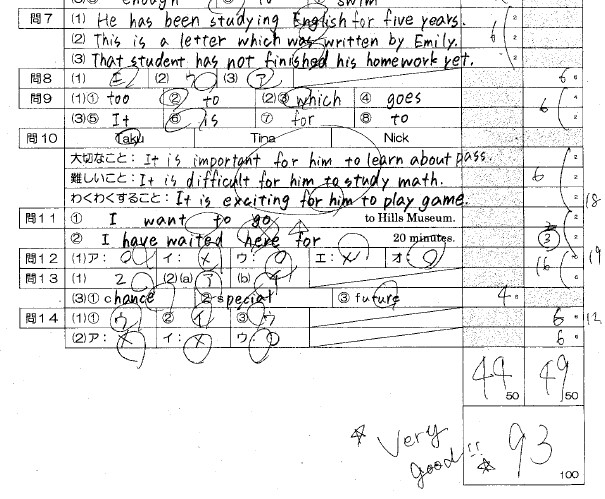 enough swim
問7 (1) He has been studying English for five years.
(2) This is a letter which was written by Emily.
(3) That student has not finished his homework yet. 6
問8 (1) エ (2) ウ (3) ア 6
問9 (1)① too ② to (2)③ which ④ goes 6
(3)⑤ It ⑥ is ⑦ for ⑧ to
問10 Taku Tina Nick
大切なこと: It is important for him to learn about pass.
難しいこと: It is difficult for him to study math. 6
わくわくすること: It is exciting for him to play game. 18
問11 ① I want to go to Hills Museum.
② I have waited here for 20 minutes. ③ 19
問12 (1)ア: ○ イ: × ウ: ○ エ: × オ: ○ 16
問13 (1) 2 (2)(a) ア (b) イ
(3)① chance ② special ③ future 4
問14 (1)① ウ ② イ ③ ウ 6 12
(2)ア: × イ: × ウ: ○ 6
44 50 49 50
☆ Very good!! ☆ 93 100